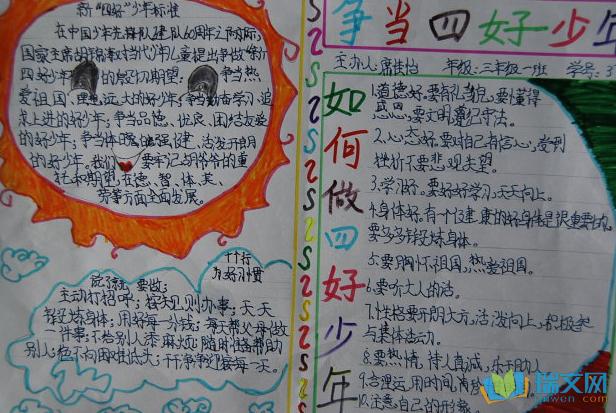 新"四好"少年标准
在中国少年先锋队建队60周年之际,
国家主席胡锦涛对当代少年儿童提出争做"新
四好少年"的殷切期望。争当热
爱祖国、理想远大的好少年;争当勤奋学习、追
求上进的好少年;争当品德优良、团结友爱
的好少年;争当体魄强健、活泼开朗
的好少年。我们要牢记胡爷爷的重
托和期望,在德、智、体、美、
劳等方面全面发展。
十个
好习惯
说了就要做;
主动打招呼;按规则办事;天天
锻炼身体;用好每一分钱;每天帮父母做
一件事;不给别人添麻烦;随时准备帮助
别人;面对困难不低头;干干净净迎接每一天。
争当四好少年
主办人:席佳怡 年级:三年级一班 学号:
如何做四好少年
1.道德好。要有礼貌,要懂得
感恩,要文明遵纪守法。
2.心态好。要对自己有信心,受到
挫折不要悲观失望。
3.学习好。要好好学习,天天向上。
4.身体好。有一个健康的好身体是很重要的,
要多多锻炼身体。
5.要胸怀祖国,热爱祖国。
6.要听大人的话。
7.性格要开朗大方,活泼向上,积极参
与集体活动。
8.要热情,待人真诚,乐于助人
9.合理运用时间,
10.注意自己的形象
瑞文网